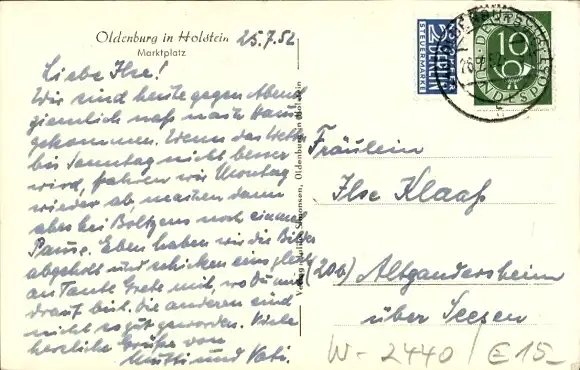 Oldenburg in Holstein
Marktplatz
25.7.52
Liebe Ilse!
Wir sind heute gegen Abend
ziemlich naß nach Haus
gekommen. Wenn das Wetter
bis Sonntag nicht besser
wird, fahren wir Montag
wieder ab, machen dann
aber bei Boltzens noch einmal
Pause. Eben haben wir die Bilder
abgeholt und schicken eins gleich
an Tante Grete mit, wo Du mit
drauf bist. Die anderen sind
nicht so gut geworden. Viele
herzliche Grüße von
Mutti und Vati.
Simonsen, Oldenburg in Holstein
2
BERLIN
STEUERMARKE
10
DEUTSCHE
BUNDESPOST
Fräulein
Ilse Klaaß
(20b) Altgandersheim
über Seesen
W-2440/E15-